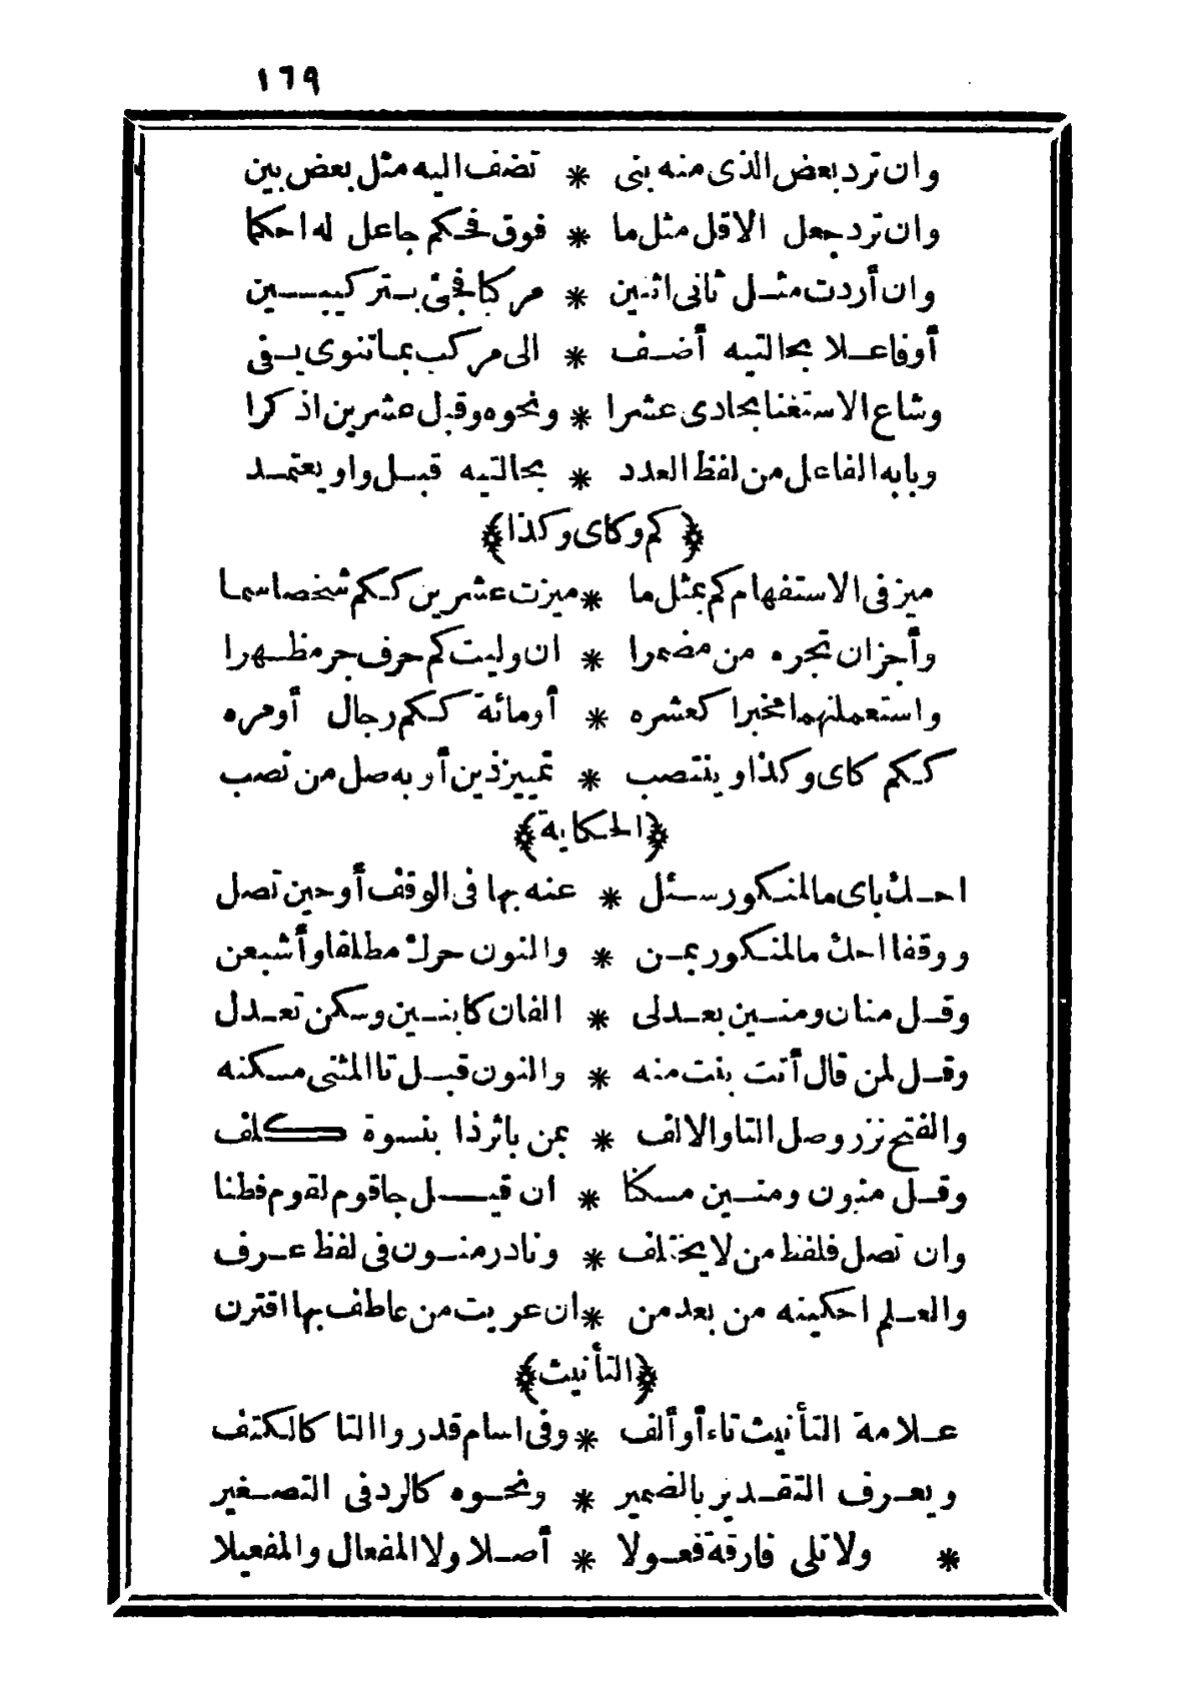 ١٦٩
وان ترد بعض الذى منه بنى * تضف اليه مثل بعض بين
وان ترد جعل الاقل مثل ما * فوق فحكم جاعل له احكما
وان أردت مثل ثانى اثنين * مركبا فجئ بتركيبين
أوفاعلا بحالتيه أضف * الى مركب بما تنوى يفى
وشاع الاستغنا بحادى عشرا * ونحوه وقبل عشرين اذكرا
وبابه الفاعل من لفظ العدد * بحالتيه قبل واو يعتمد
﴿كم وكاى وكذا﴾
ميز فى الاستفهام كم بمثل ما * ميزت عشرين ككم شخصا سما
وأجز ان تجره من مضمرا * ان وليت كم حرف جر مظهرا
واستعملنها مخبرا كعشره * أومائة ككم رجال أومره
ككم كاى وكذا وينتصب * تمييز ذين أو به صل من تصب
﴿الحكاية﴾
احك باى ما لمنكور سئل * عنه بها فى الوقف أو حين تصل
ووقفا احك ما لمنكور بمن * والنون حرك مطلقا وأشبعن
وقل منان ومنين بعد لى * الفان كابنين وسكن تعدل
وقل لمن قال أتت بنت منه * والنون قبل تا المثنى مسكنه
والفتح نزر وصل التا والالف * بمن باثر ذا بنسوة كلف
وقل منون ومنين مسكنا * ان قيل جا قوم لقوم فطنا
وان تصل فلفظ من لا يختلف * ونادر منون فى لفظ عرف
والعلم احكينه من بعد من * ان عريت من عاطف بها اقترن
﴿التأنيث﴾
علامة التأنيث تاء أوألف * وفى اسام قدروا التا كالكتف
ويعرف التقدير بالضمير * ونحوه كالرد فى التصغير
* ولا تلى فارقة فعولا * أصلا ولا المفعال والمفعيلا